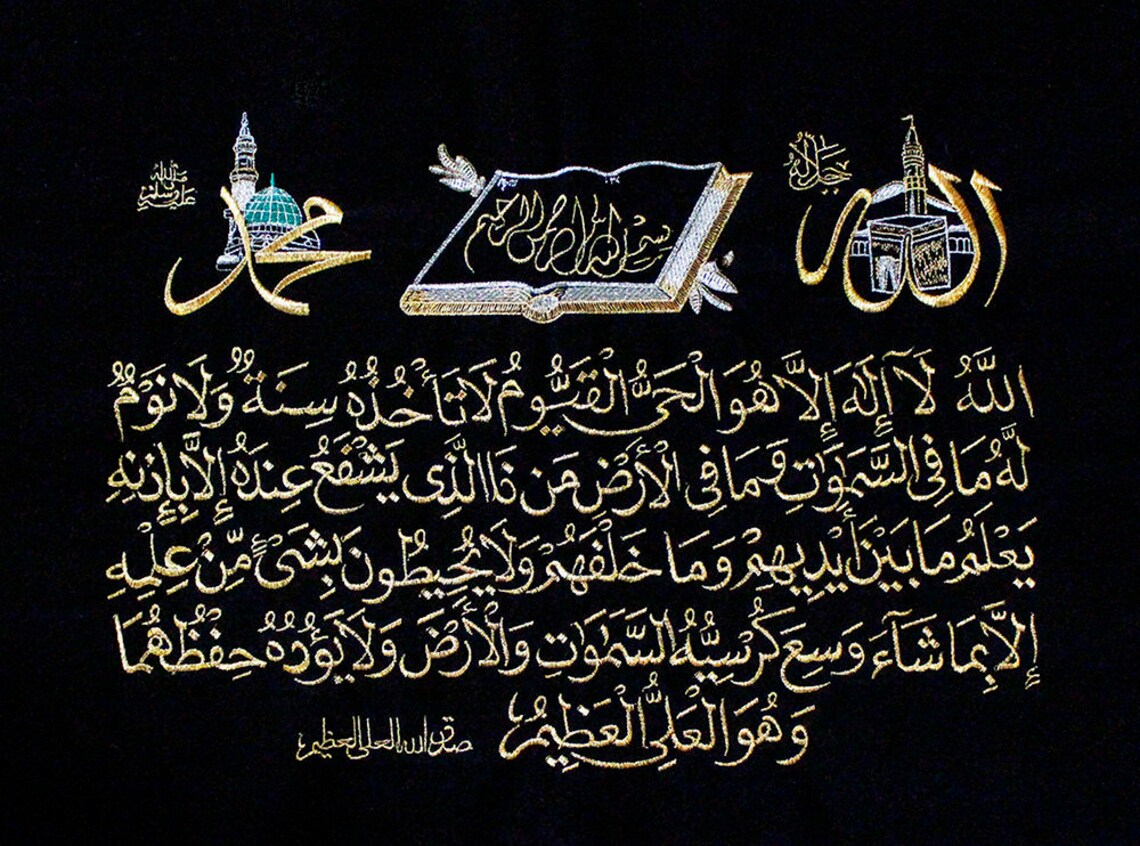 الله
جلاله
بسم الله الرحمن الرحيم
محمد
صلى الله عليه وسلم
اللَّهُ لَآ إِلَٰهَ إِلَّا هُوَ الْحَىُّ الْقَيُّومُ لَا تَأْخُذُهُ سِنَةٌ وَلَا نَوْمٌ
لَّهُ مَا فِى السَّمَٰوَٰتِ وَمَا فِى الْأَرْضِ مَن ذَا الَّذِى يَشْفَعُ عِندَهُ إِلَّا بِإِذْنِهِ
يَعْلَمُ مَا بَيْنَ أَيْدِيهِمْ وَمَا خَلْفَهُمْ وَلَا يُحِيطُونَ بِشَىْءٍ مِّنْ عِلْمِهِ
إِلَّا بِمَا شَآءَ وَسِعَ كُرْسِيُّهُ السَّمَٰوَٰتِ وَالْأَرْضَ وَلَا يَؤُدُهُ حِفْظُهُمَا
وَهُوَ الْعَلِىُّ الْعَظِيمُ
صدق الله العلي العظيم